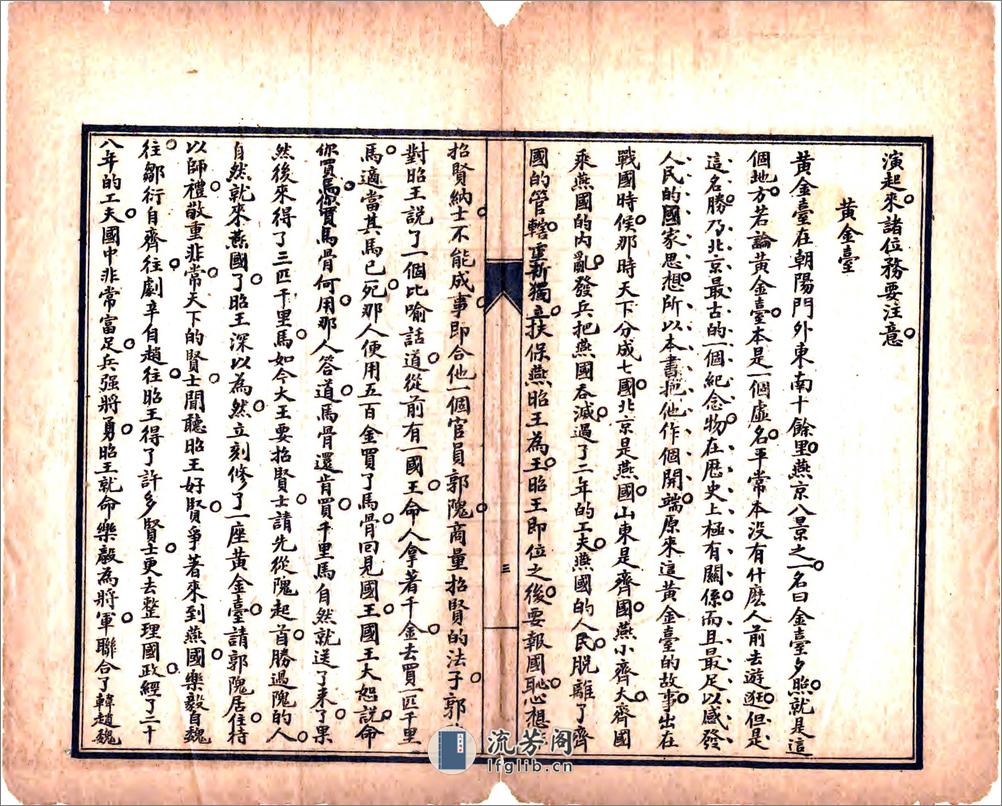 演起來諸位務要注意
黃金臺
黃金臺在朝陽門外東南十餘里燕京八景之一名曰金臺夕照就是這
個地方若論黃金臺本是一個虛名平常本没有什麽人前去遊逛但是
這名勝乃北京最古的一個紀念物在歷史上極有關係而且最足以感發
人民的國家思想所以本書把他作個開端原來這黃金臺的故事出在
戰國時候那時天下分成七國北京是燕國山東是齊國燕小齊大齊國
乘燕國的內亂發兵把燕國吞滅過了二年的工夫燕國的人民脫離了齊
國的管轄重新獨立扶保燕昭王為王昭王即位之後要報國恥心想
三
招賢納士不能成事即合他一個官員郭隗商量招賢的法子郭
對昭王說了一個比喻話道從前有一國王命人拿著千金去買一匹千里
馬適當其馬已死那人便用五百金買了馬骨回見國王國王大怒說命
你買馬俶買馬骨何用那人答道馬骨還肯買千里馬自然就送了來了果
然後來得了三匹千里馬如今大王要招賢士請先從隗起首勝過隗的人
自然就來燕國了昭王深以為然立刻修了一座黃金臺請郭隗居住待
以師禮敬重非常天下的賢士聞聽昭王好賢爭著來到燕國樂毅自魏
往鄒衍自齊往劇辛自趙往昭王得了許多賢士更去整理國政經了二十
八年的工夫國中非常富足兵强將勇昭王就命樂毅為將軍聯合了韓趙魏
流芳阁
lfglib.cn